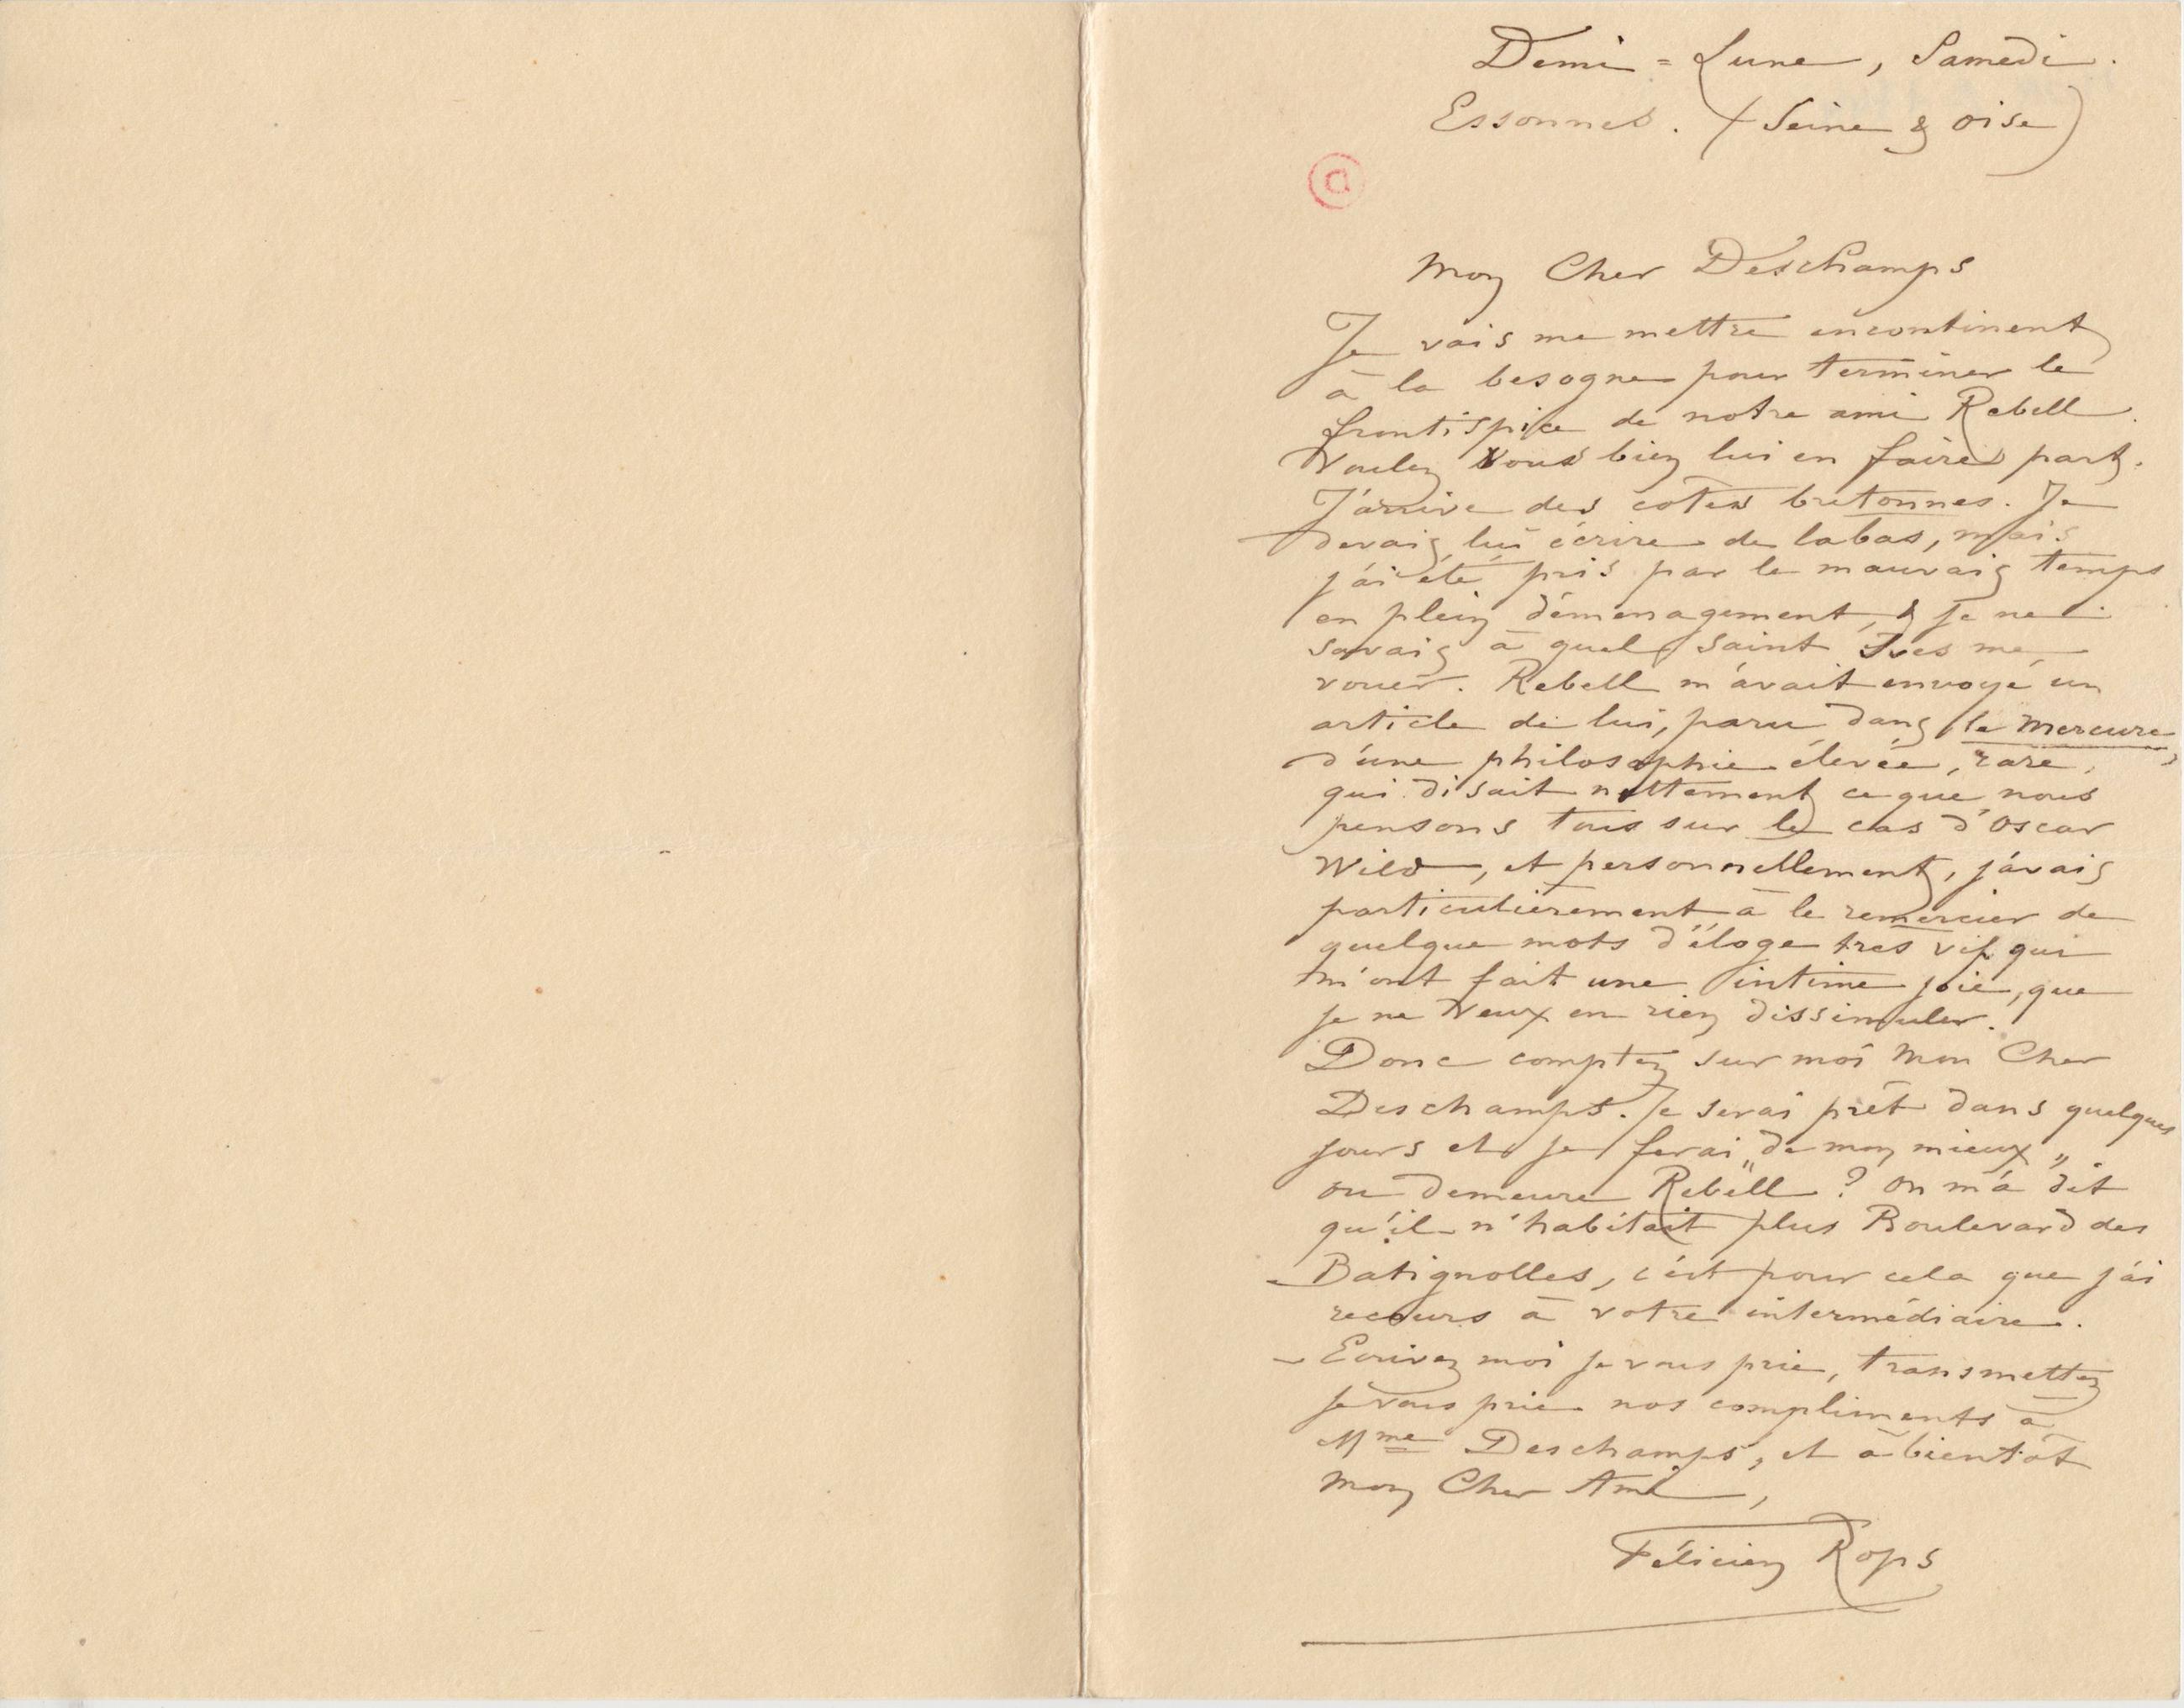 Demi=Lune, Samedi.
Essonnes. (Seine & Oise)
Mon Cher Deschamps
Je vais me mettre encontinent
à la besogne pour terminer le
frontispice de notre ami Rebell.
Voulez vous bien lui en faire part.
J'arrive des cotes bretonnes. Je
devais lui écrire de labas, mais
j'ai été pris par le mauvais temps
en plein déménagement, & je ne
savais à quel saint Ives me
vouer. Rebell m'avait envoyé un
article de lui, paru dans le Mercure,
d'une philosophie élevée, rare,
qui disait nettement ce que nous
pensons tous sur le cas d'Oscar
Wild, et personnellement, j'avais
particulièrement à le remercier de
quelque mots d'éloge tres vif qui
m'ont fait une intime joie, que
je ne veux en rien dissimuler.
Donc comptez sur moi Mon Cher
Deschamps. Je serai prêt dans quelques
jours et je ferai „de mon mieux„
ou demeure Rebell? On m'a dit
qu'il n'habitait plus Boulevard des
Batignolles, c'est pour cela que j'ai
recours à votre intermédiaire.
– Ecrivez moi je vous prie, transmettez
je vous prie nos compliments à
Mme Deschamps, et à bientôt
Mon Cher Ami,
Félicien Rops